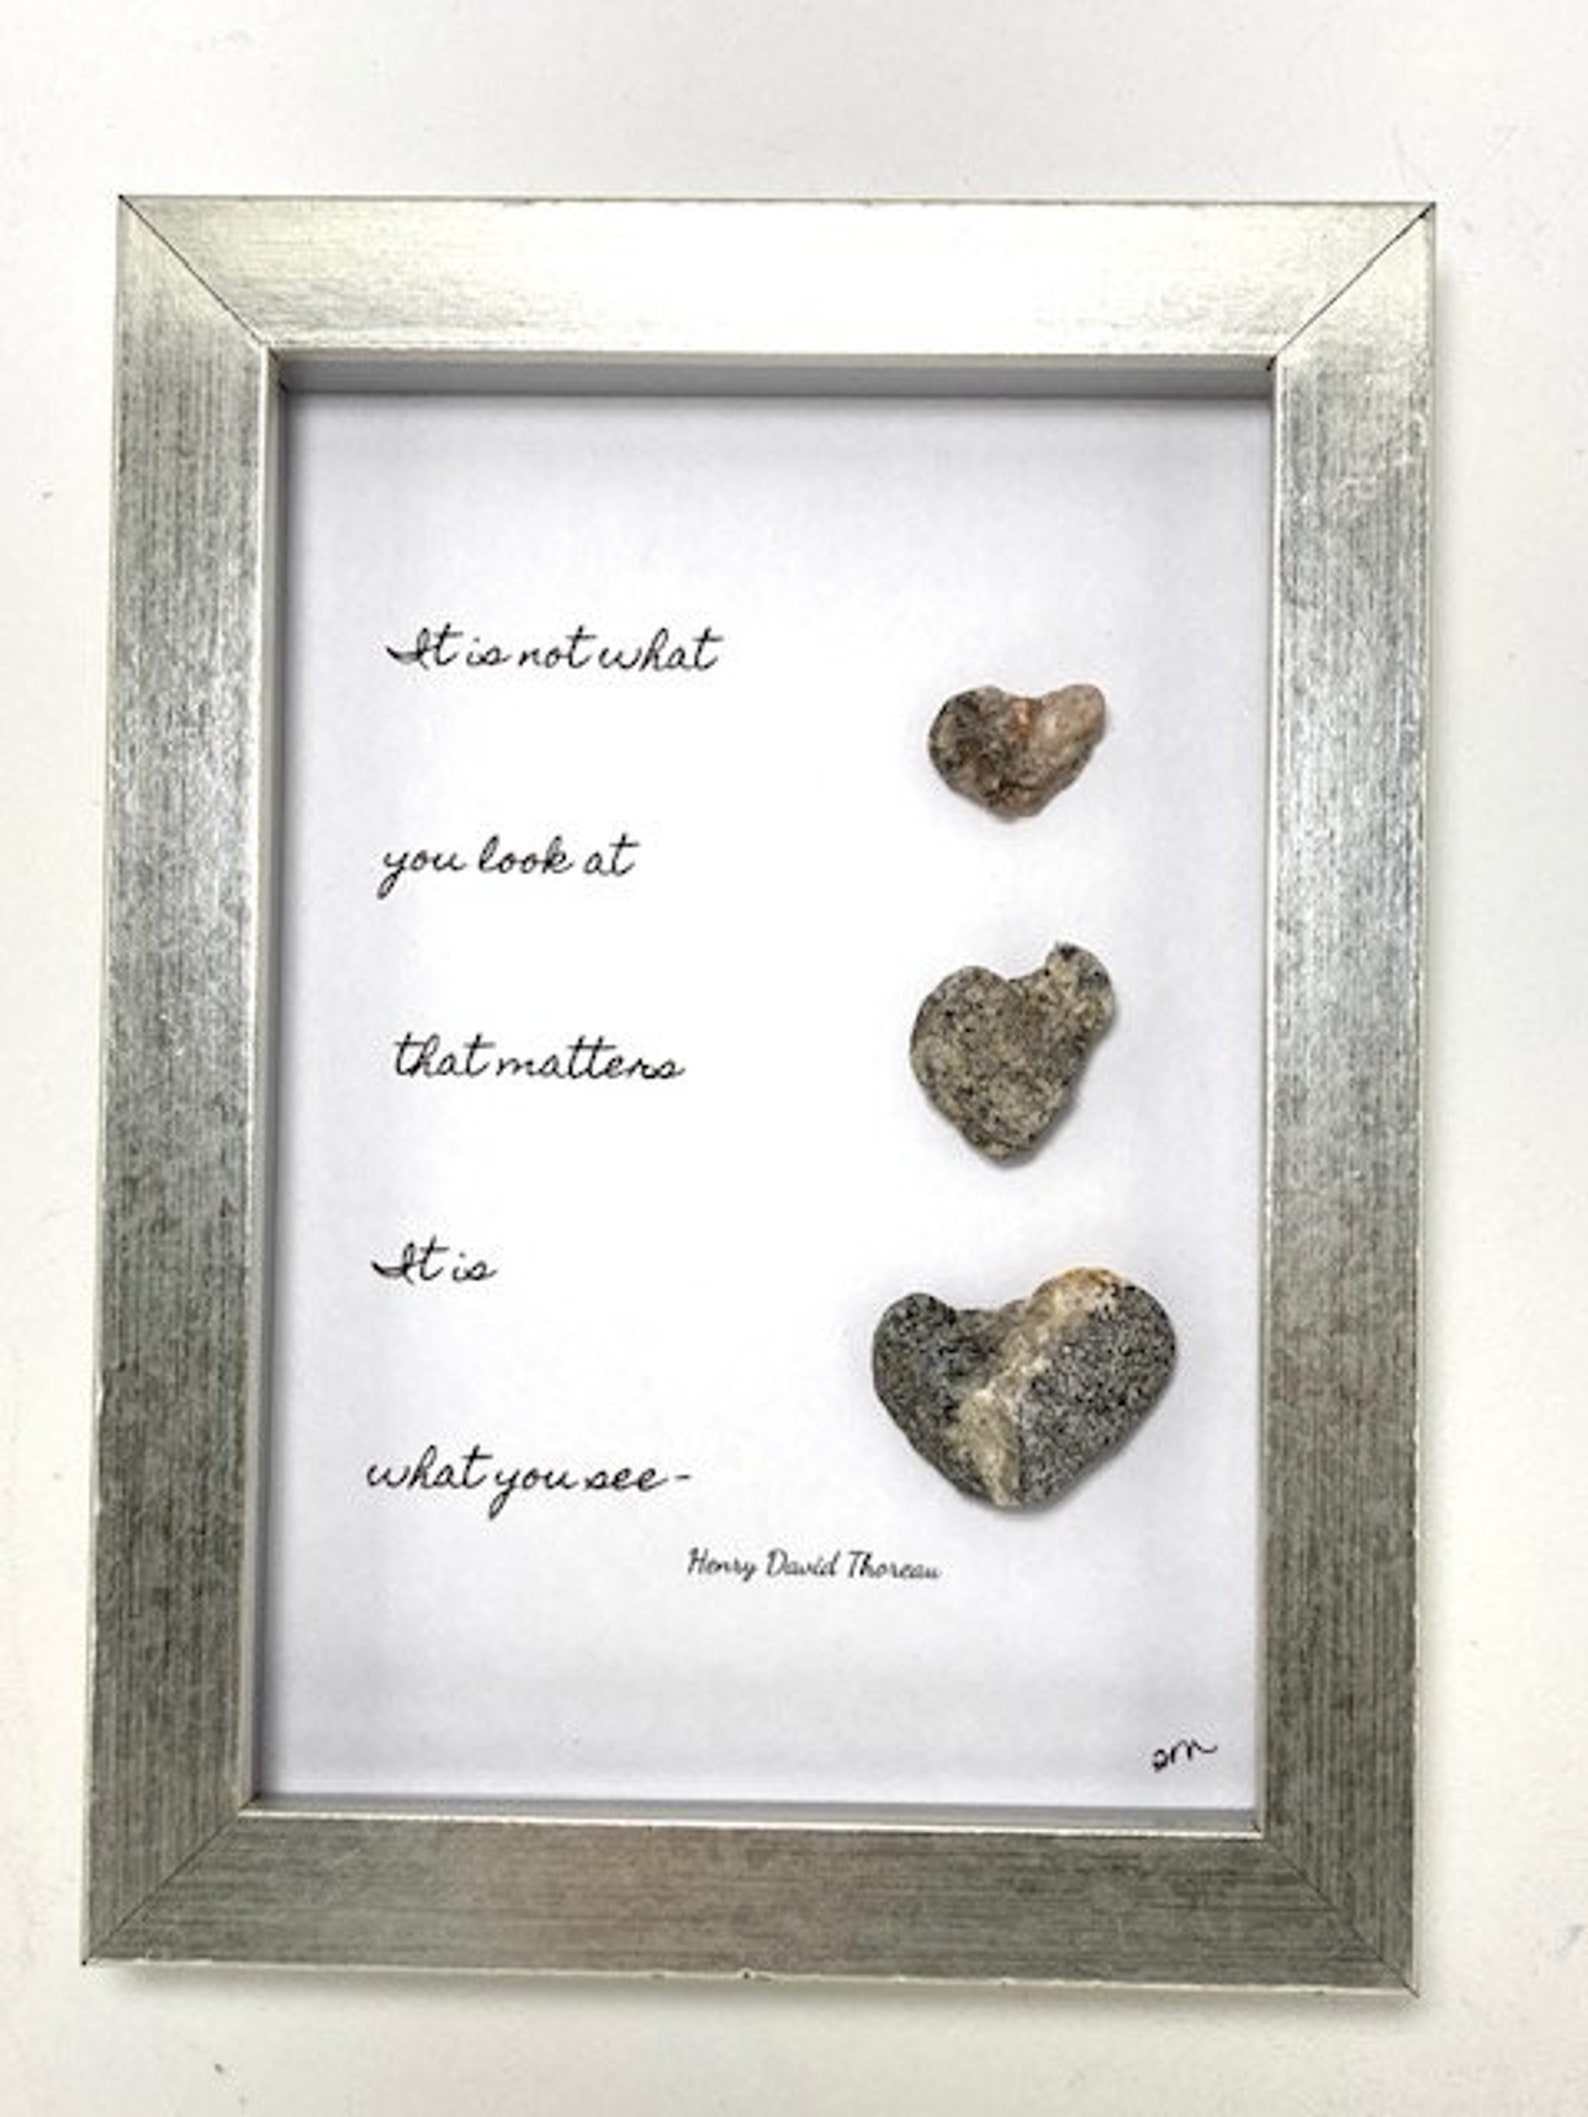 It is not what
you look at
that matters
It is
what you see-
Henry David Thoreau